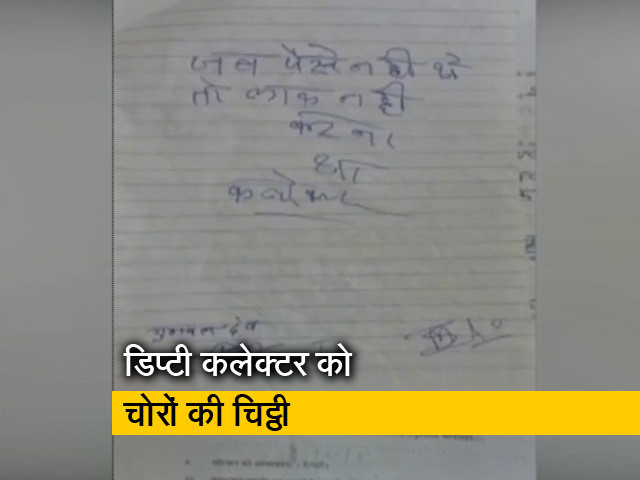 जब पैसे नही थे
तो लाक नही
करना
था
कलेक्टर
डिप्टी कलेक्टर को
चोरों की चिट्ठी